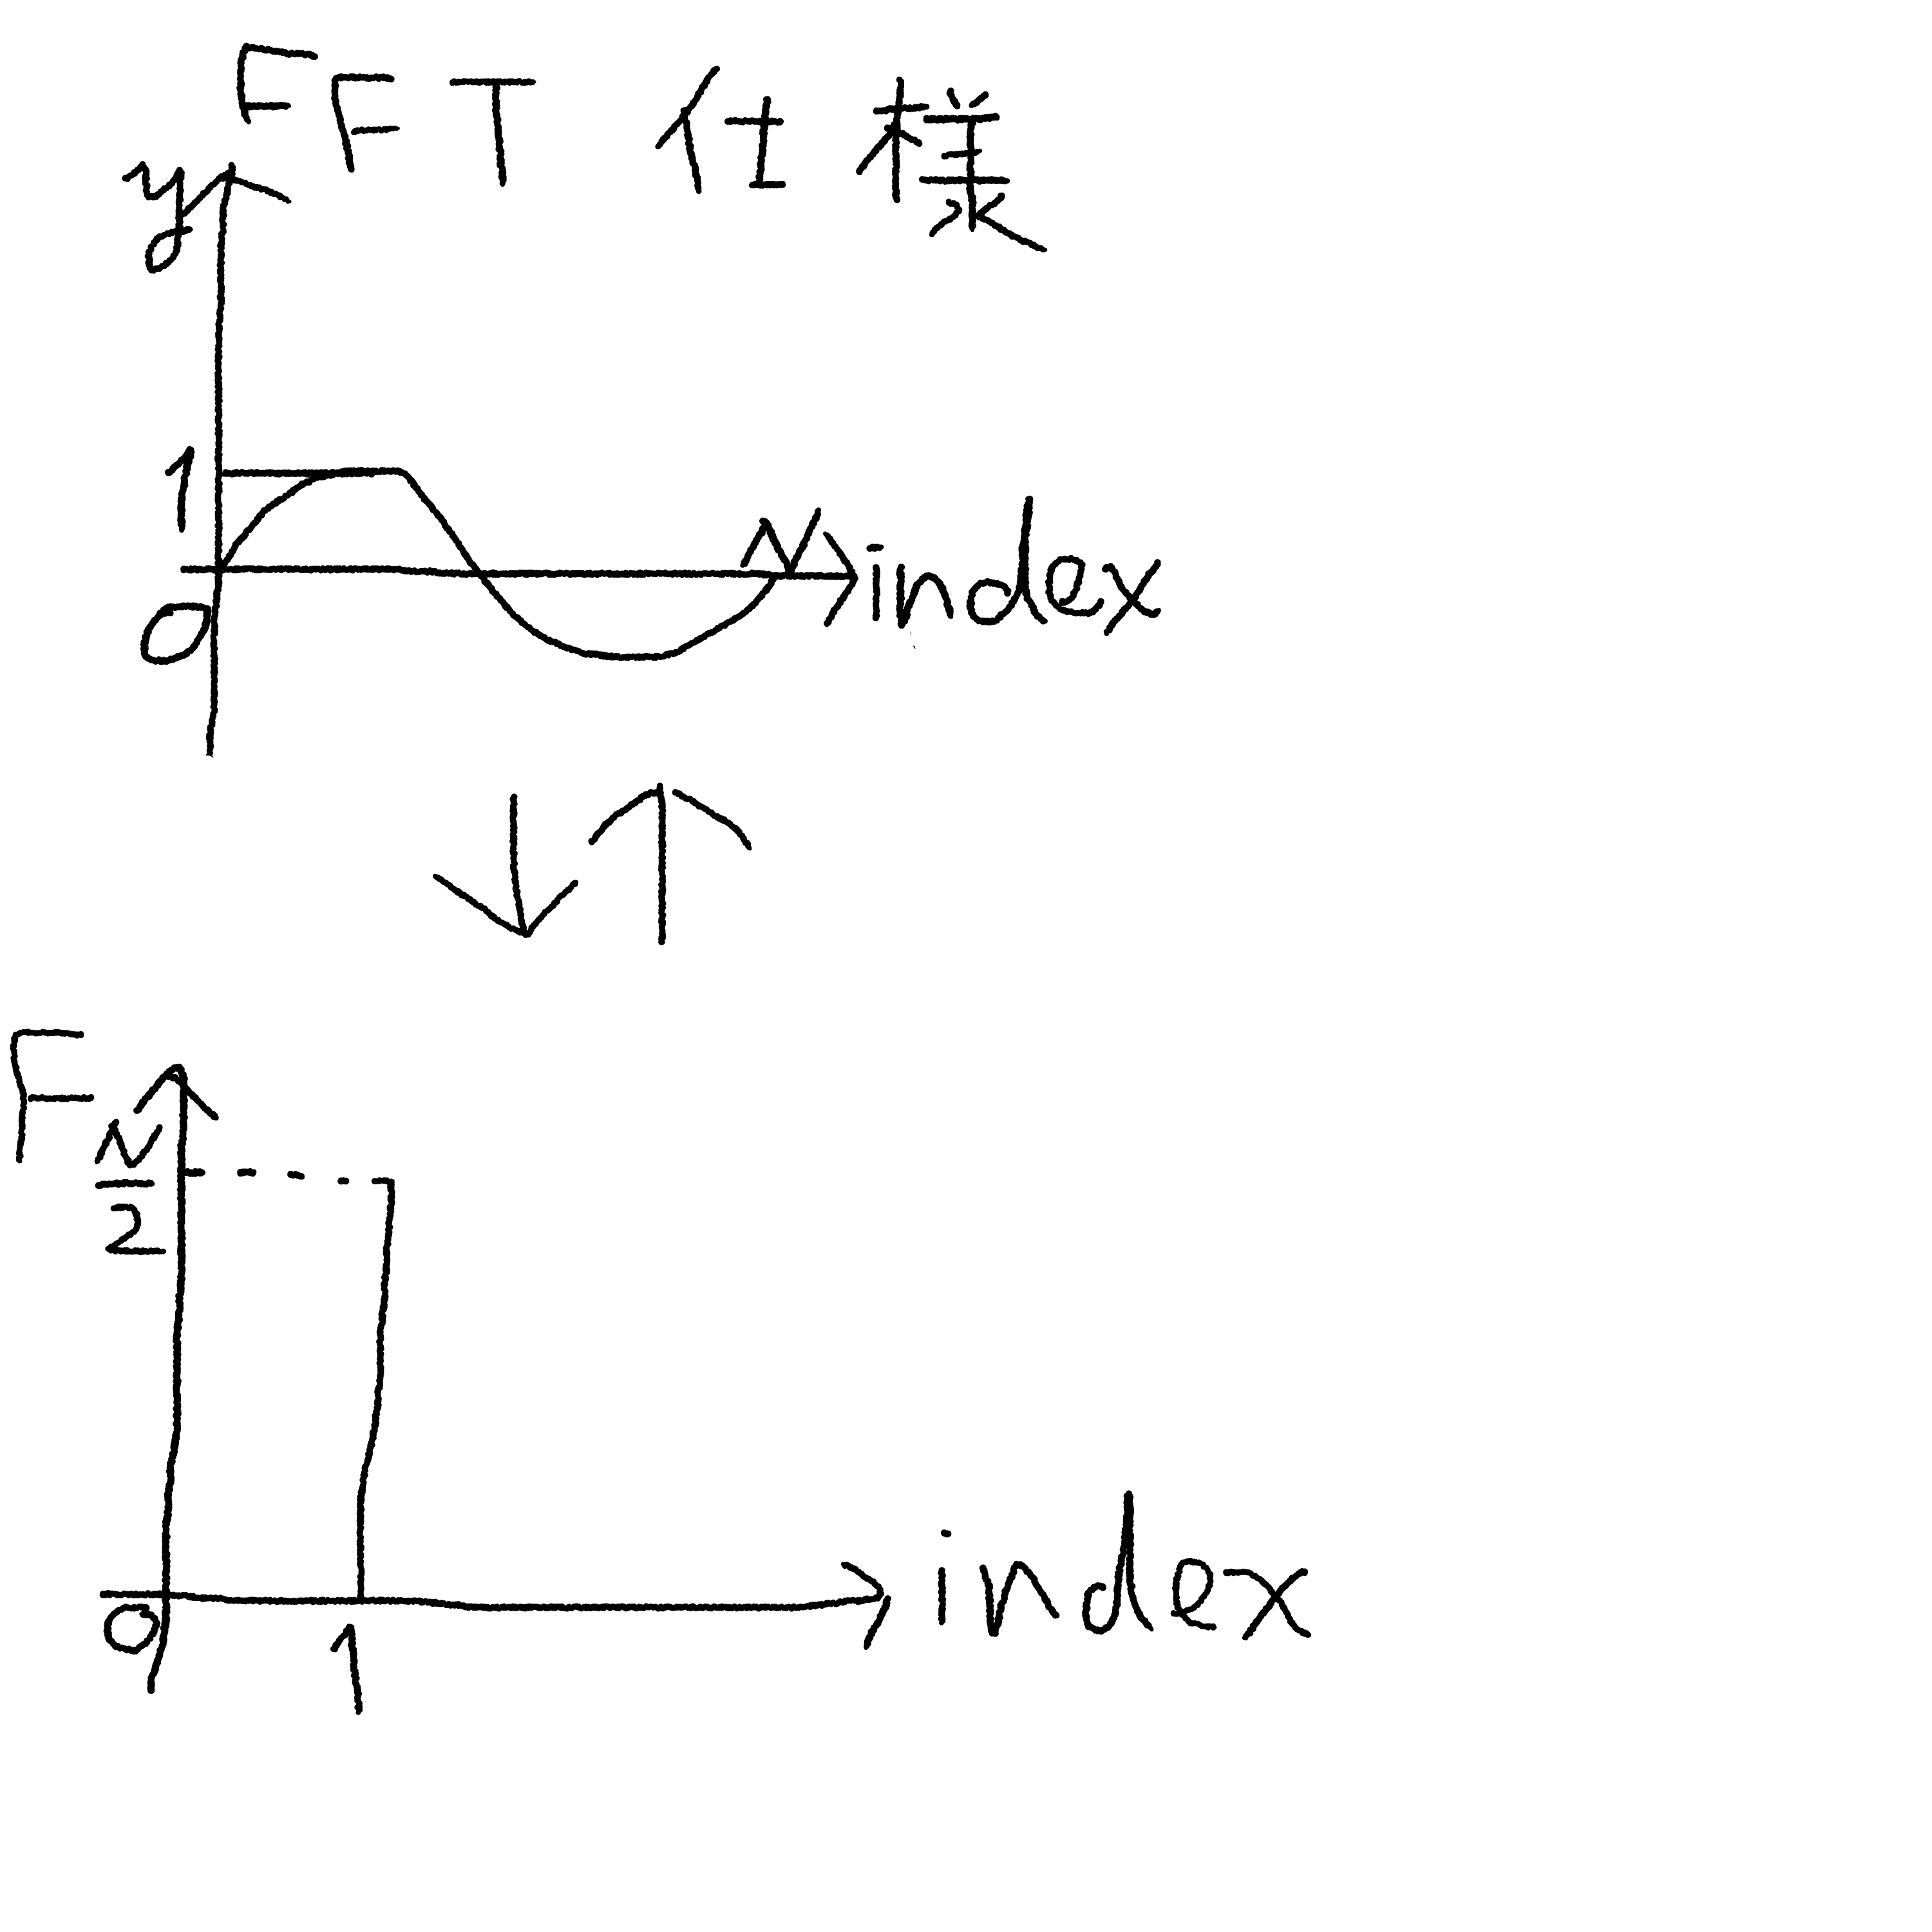 FFT 仕様
y
1
N
index
0
F
N
2
0
1
index